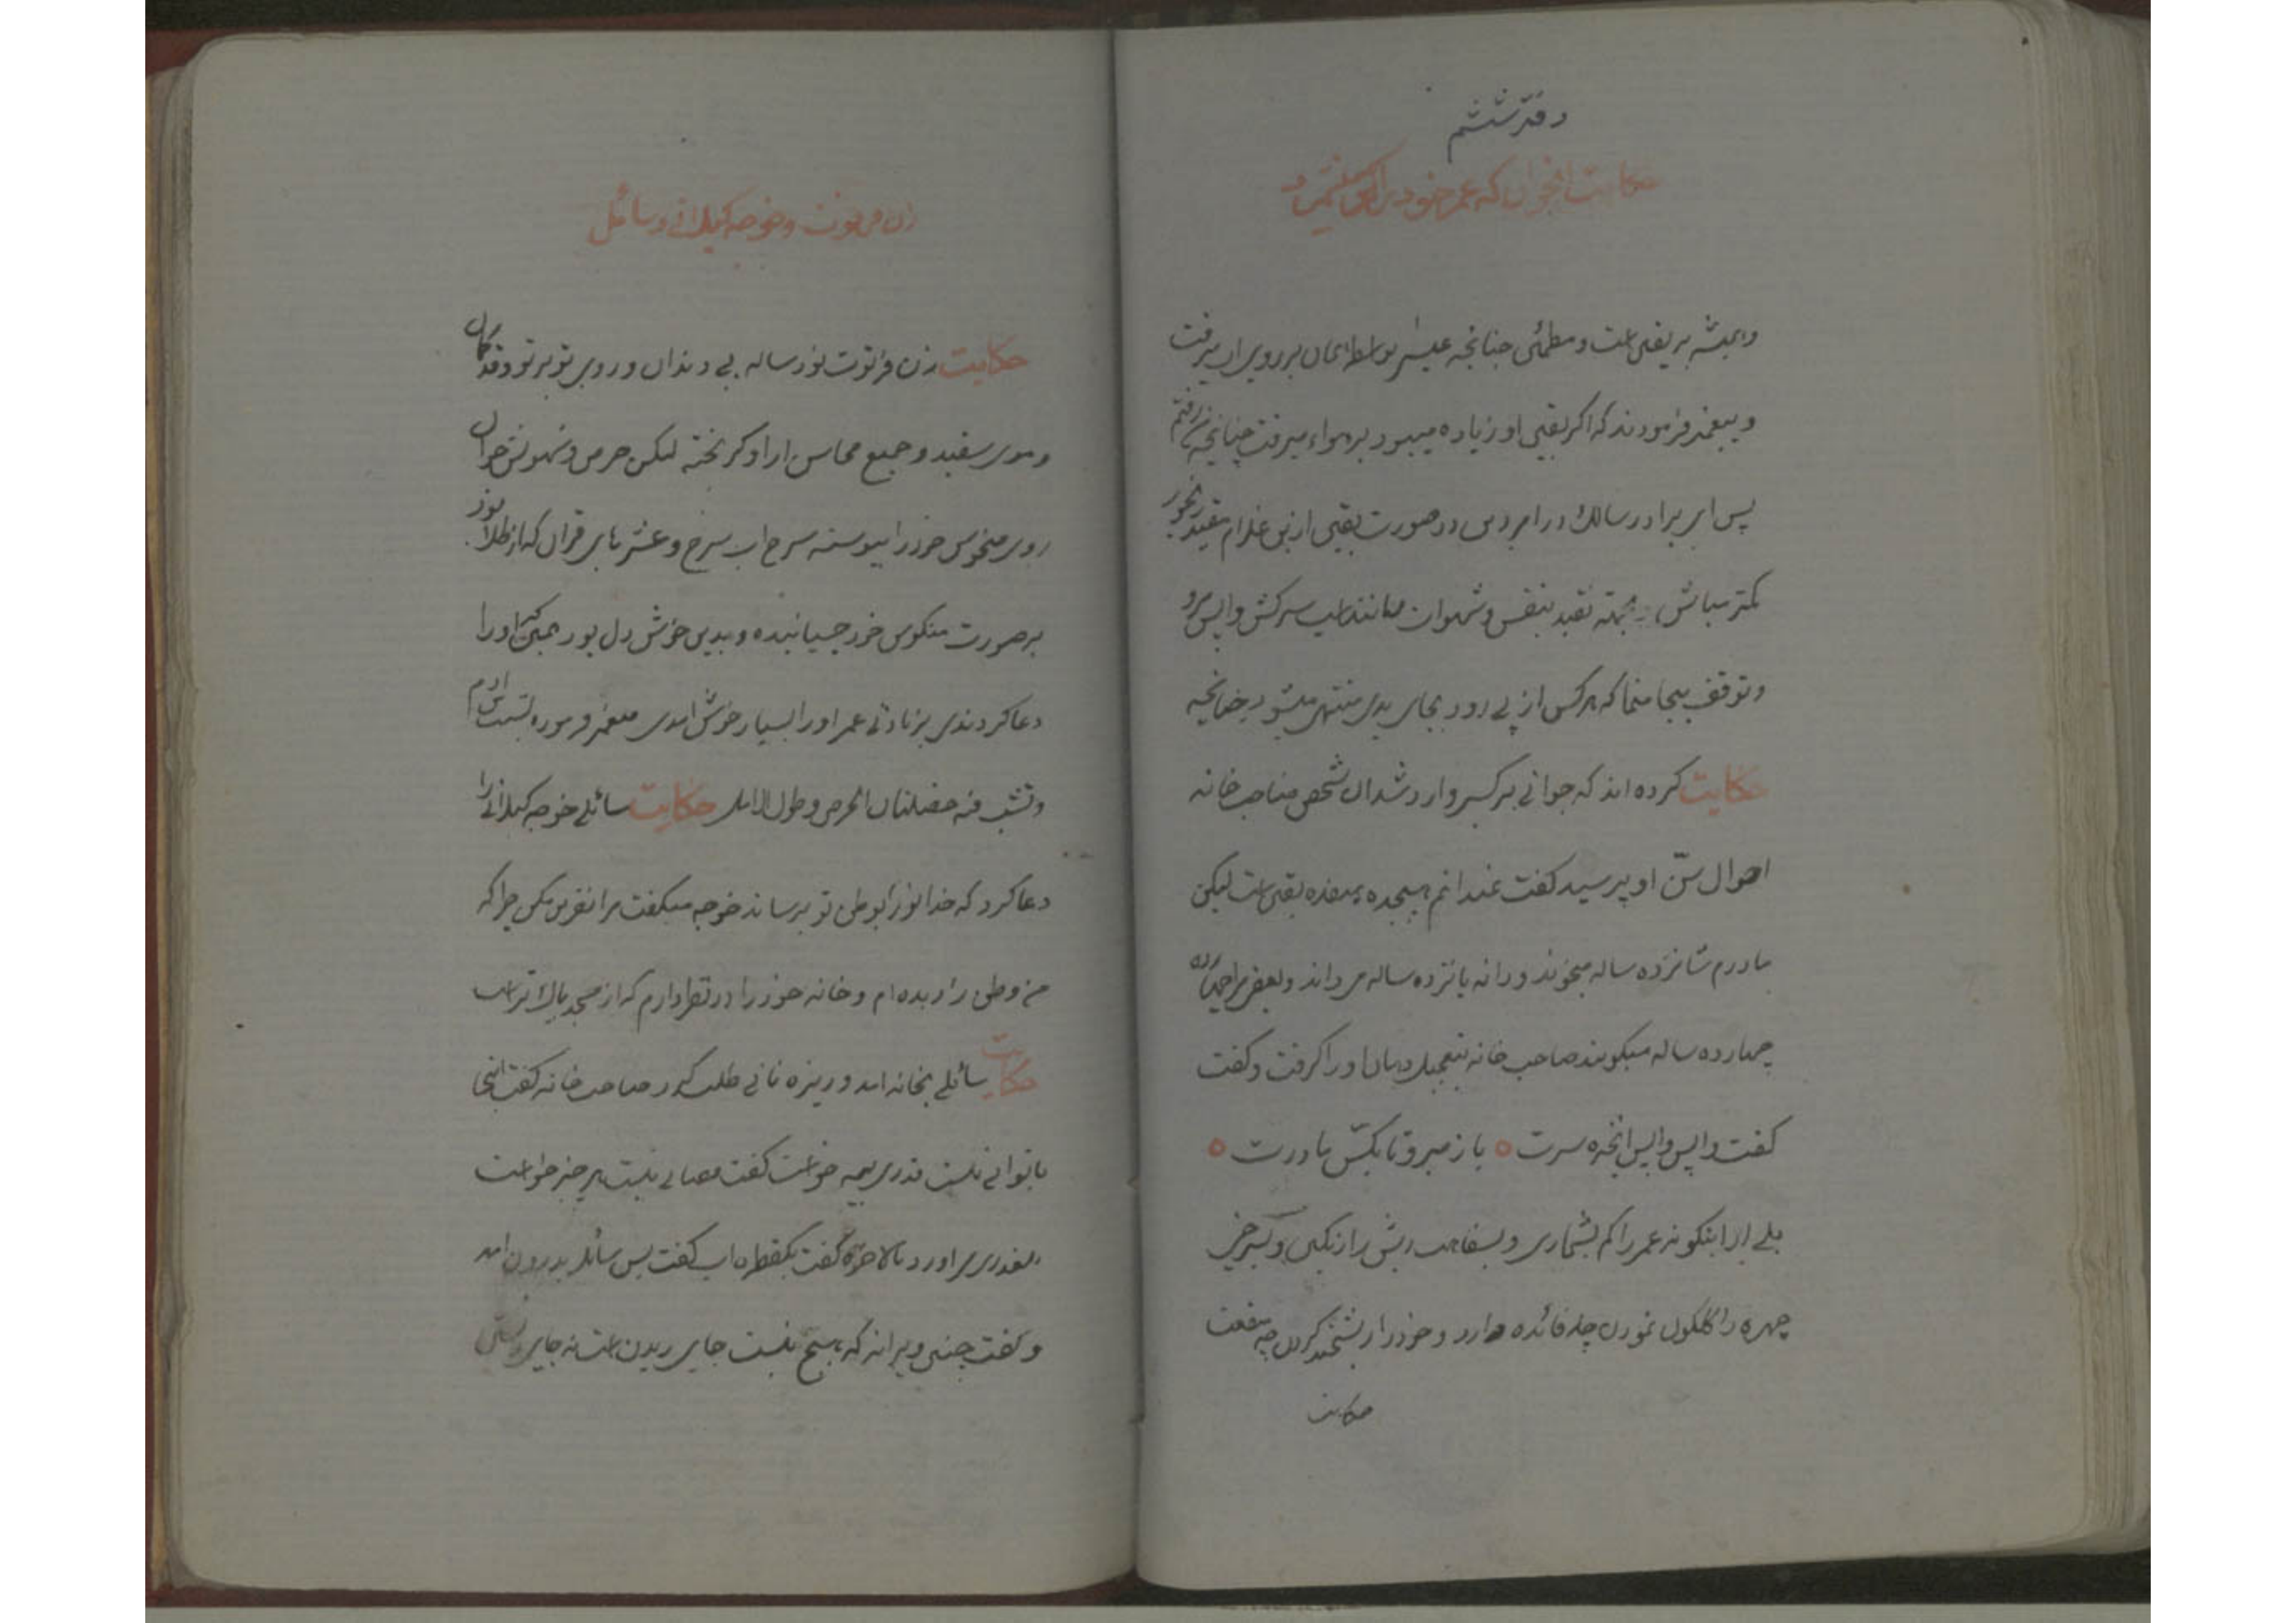 دفتر ششم
حکایت انجوان که عمر خود را کم
و همیشه بر یقین است و مطمئن چنانچه عیسی بواسطه ایمان بر روی اب میرفت
و پیغمبر فرمودند که اکر یقین او زیاده میبود بر هواء میرفت چنانچه من رفتم
پس ای برادر سالک در امر دین در صورت یقین از این غلام
کمتر مباش نفس و شهوات مانند اسب سرکش واپس مرو
و توقف بیجا منما که هرکس از پی رود بجای بدی منتهی میشود چنانچه
حکایت کرده اند که جوانی بر کسی وارد شد ان شخص صاحب خانه
احوال سن او پرسید کفت نمیدانم هیجده هیفده یقین است لیکن
مادرم شانزده ساله میخوند و دانه پانزده ساله می داند و بعضی
چهارده ساله میکویند صاحب خانه بتعجیل دهان او را کرفت و کفت
کفت واپس واپس انخره سرت ○ باز میرو تا بکس مادرت ○
بلی از اینکونه عمر را کم بشماری و بسفاهت ریش را رنکین و
چهره را کلکون نمودن چه فائده دارد و خود را ریشخند کردن چه منفعت
حکایت
زن فرتوت و خوجه کیلانی و سائل
حکایت زن فرتوت نود ساله بی دندان و روی تو بر تو و قد کمان
و موی سفید و جمیع محاسن از او کریخته لیکن حرص و شهوتش جوان
روی منحوس خود را پیوسته سرخاب سرخ و عشرهای قران که از طلا بود
بر صورت منکوس خود چسپانیده و بدین خوش دل بود او را
دعا کردندی بزیادتی عمر او را بسیار خوش امدی پیغمبر فرموده یشیب ابن ادم
و تشب فیه خصلتان الحرص و طول الامل حکایت سائلی خوجه کیلانی را
دعا کرد که خدا تو را بوطن تو برساند خوجه میکفت مرا نفرین مکن چرا که
من وطن را دیده ام و خانه خود را در نظر دارم که از مسجد پاک تر است
حکایت سائلی بخانه امد و ریزه نانی طلب کرد صاحب خانه کفت اینجا
نانوائی نیست قدری پیه خواست کفت قصابی نیست هر چیز خواست
عذری می اورد بالاخره کفت یکقطره اب کفت پس سائل بدرون امد
و کفت چنین ویرانه که هیچ نیست جای ریدن است نه جای